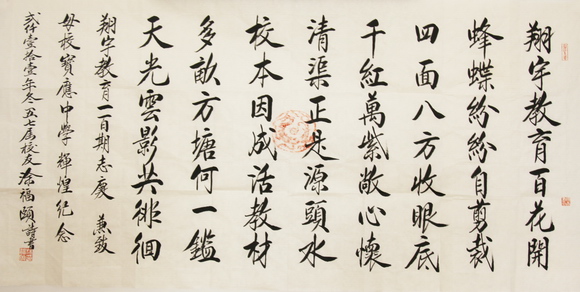 翔宇教育百花開
蜂蝶紛紛自剪裁
四面八方收眼底
千紅萬紫敞心懷
清渠正是源頭水
校本因成活教材
多畝方塘何一鑑
天光雲影共徘徊
翔宇教育一百期志慶 兼致
母校寶應中學輝煌紀念
貳仟壹拾壹年冬五七届校友福頤詩書